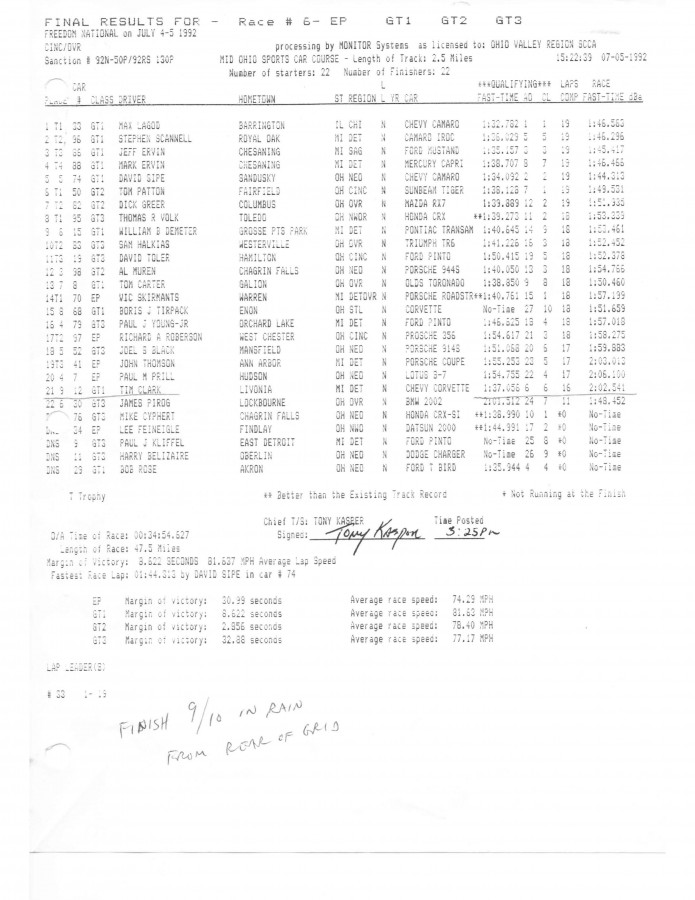 FINAL RESULTS FOR - Race # 6- EP GT1 GT2 GT3
FREEDOM NATIONAL on JULY 4-5 1992
CINC/OVR processing by MONITOR Systems as licensed to: OHIO VALLEY REGION SCCA
Sanction # 92N-50P/92RS 130P MID OHIO SPORTS CAR COURSE - Length of Track: 2.5 Miles 15:22:39 07-05-1992
Number of starters: 22 Number of Finishers: 22
CAR L ***QUALIFYING*** LAPS RACE
PLACE # CLASS DRIVER HOMETOWN ST REGION L YR CAR FAST-TIME AD CL COMP FAST-TIME dBa
1 T1 33 GT1 MAX LAGOD BARRINGTON IL CHI N CHEVY CAMARO 1:32.782 1 1 19 1:46.583
2 T2 96 GT1 STEPHEN SCANNELL ROYAL OAK MI DET N CAMARO IROC 5 5 19 1:46.296
3 T3 GT1 JEFF ERVIN CHESANING MI SAG N FORD MUSTANG 1:35.157 3 3 19 1:45.417
4 T4 88 GT1 MARK ERVIN CHESANING MI DET N MERCURY CAPRI 1:38.707 8 7 19 1:46.466
5 5 74 GT1 DAVID SIPE SANDUSKY OH NEO N CHEVY CAMARO 1:34.092 2 2 19 1:44.313
6 T1 50 GT2 TOM PATTON FAIRFIELD OH CINC N SUNBEAM TIGER 1:38.128 7 1 19 1:49.531
7 T2 82 GT2 DICK GREER COLUMBUS OH OVR N MAZDA RX7 1:39.889 12 2 19 1:51.935
8 T1 95 GT3 THOMAS R VOLK TOLEDO OH NWOR N HONDA CRX **1:39.273 11 2 18 1:53.339
9 6 15 GT1 WILLIAM B DEMETER GROSSE PTS PARK MI DET N PONTIAC TRANSAM 1:40.645 14 9 18 1:53.461
10T2 83 GT3 SAM HALKIAS WESTERVILLE OH OVR N TRIUMPH TR6 1:41.226 16 3 18 1:52.452
11T3 19 GT3 DAVID TOLER HAMILTON OH CINC N FORD PINTO 1:50.415 19 5 18 1:52.378
12 3 98 GT2 AL MUREN CHAGRIN FALLS OH NEO N PORSCHE 944S 1:40.050 13 3 18 1:54.766
13 7 8 GT1 TOM CARTER GALION OH OVR N OLDS TORONADO 1:38.850 9 8 18 1:50.460
14T1 70 EP VIC SKIRMANTS WARREN MI DETOVR N PORSCHE ROADSTR**1:40.761 15 1 18 1:57.199
15 8 68 GT1 BORIS J TIRPACK ENON OH STL N CORVETTE No-Time 27 10 18 1:51.659
16 4 79 GT3 PAUL J YOUNG-JR ORCHARD LAKE MI DET N FORD PINTO 1:46.625 18 4 18 1:57.018
17T2 97 EP RICHARD A ROBERSON WEST CHESTER OH CINC N PROSCHE 356 1:54.617 21 3 18 1:58.275
18 5 52 GT3 JOEL S BLACK MANSFIELD OH NEO N PORSCHE 914S 1:51.068 20 6 17 1:59.883
19T3 41 EP JOHN THOMSON ANN ARBOR MI DET N PORSCHE COUPE 1:55.253 23 5 17 2:03.013
20 4 7 EP PAUL M PRILL HUDSON OH NEO N LOTUS S-7 1:54.755 22 4 17 2:06.100
21 9 12 GT1 TIM CLARK LIVONIA MI DET N CHEVY CORVETTE 1:37.056 6 6 16 2:02.541
22 6 GT3 JAMES PIROG LOCKBOURNE OH OVR N BMW 2002 2:01.512 24 7 11 1:48.452
76 GT3 MIKE CYPHERT CHAGRIN FALLS OH NEO N HONDA CRX-SI **1:38.990 10 1 *0 No-Time
DNS 34 EP LEE FEINEIGLE FINDLAY OH NWO N DATSUN 2000 **1:44.991 17 2 *0 No-Time
DNS 9 GT3 PAUL J KLIFFEL EAST DETROIT MI DET N FORD PINTO No-Time 25 8 *0 No-Time
DNS 11 GT3 HARRY BELIZAIRE OBERLIN OH NEO N DODGE CHARGER No-Time 26 9 *0 No-Time
DNS 29 GT1 BOB ROSE AKRON OH NEO N FORD T BIRD 1:35.944 4 4 *0 No-Time
T Trophy ** Better than the Existing Track Record * Not Running at the Finish
Chief T/S: TONY KASPER Time Posted
O/A Time of Race: 00:34:54.627 Signed: Tony Kasper 3:25PM
Length of Race: 47.5 Miles
Margin of Victory: 8.622 SECONDS 81.637 MPH Average Lap Speed
Fastest Race Lap: 01:44.313 by DAVID SIPE in car # 74
EP Margin of victory: 30.99 seconds Average race speed: 74.29 MPH
GT1 Margin of victory: 8.622 seconds Average race speed: 81.63 MPH
GT2 Margin of victory: 2.856 seconds Average race speed: 78.40 MPH
GT3 Margin of victory: 32.88 seconds Average race speed: 77.17 MPH
LAP LEADER(S)
# 33 1- 19
FINISH 9/10 IN RAIN
FROM REAR OF GRID